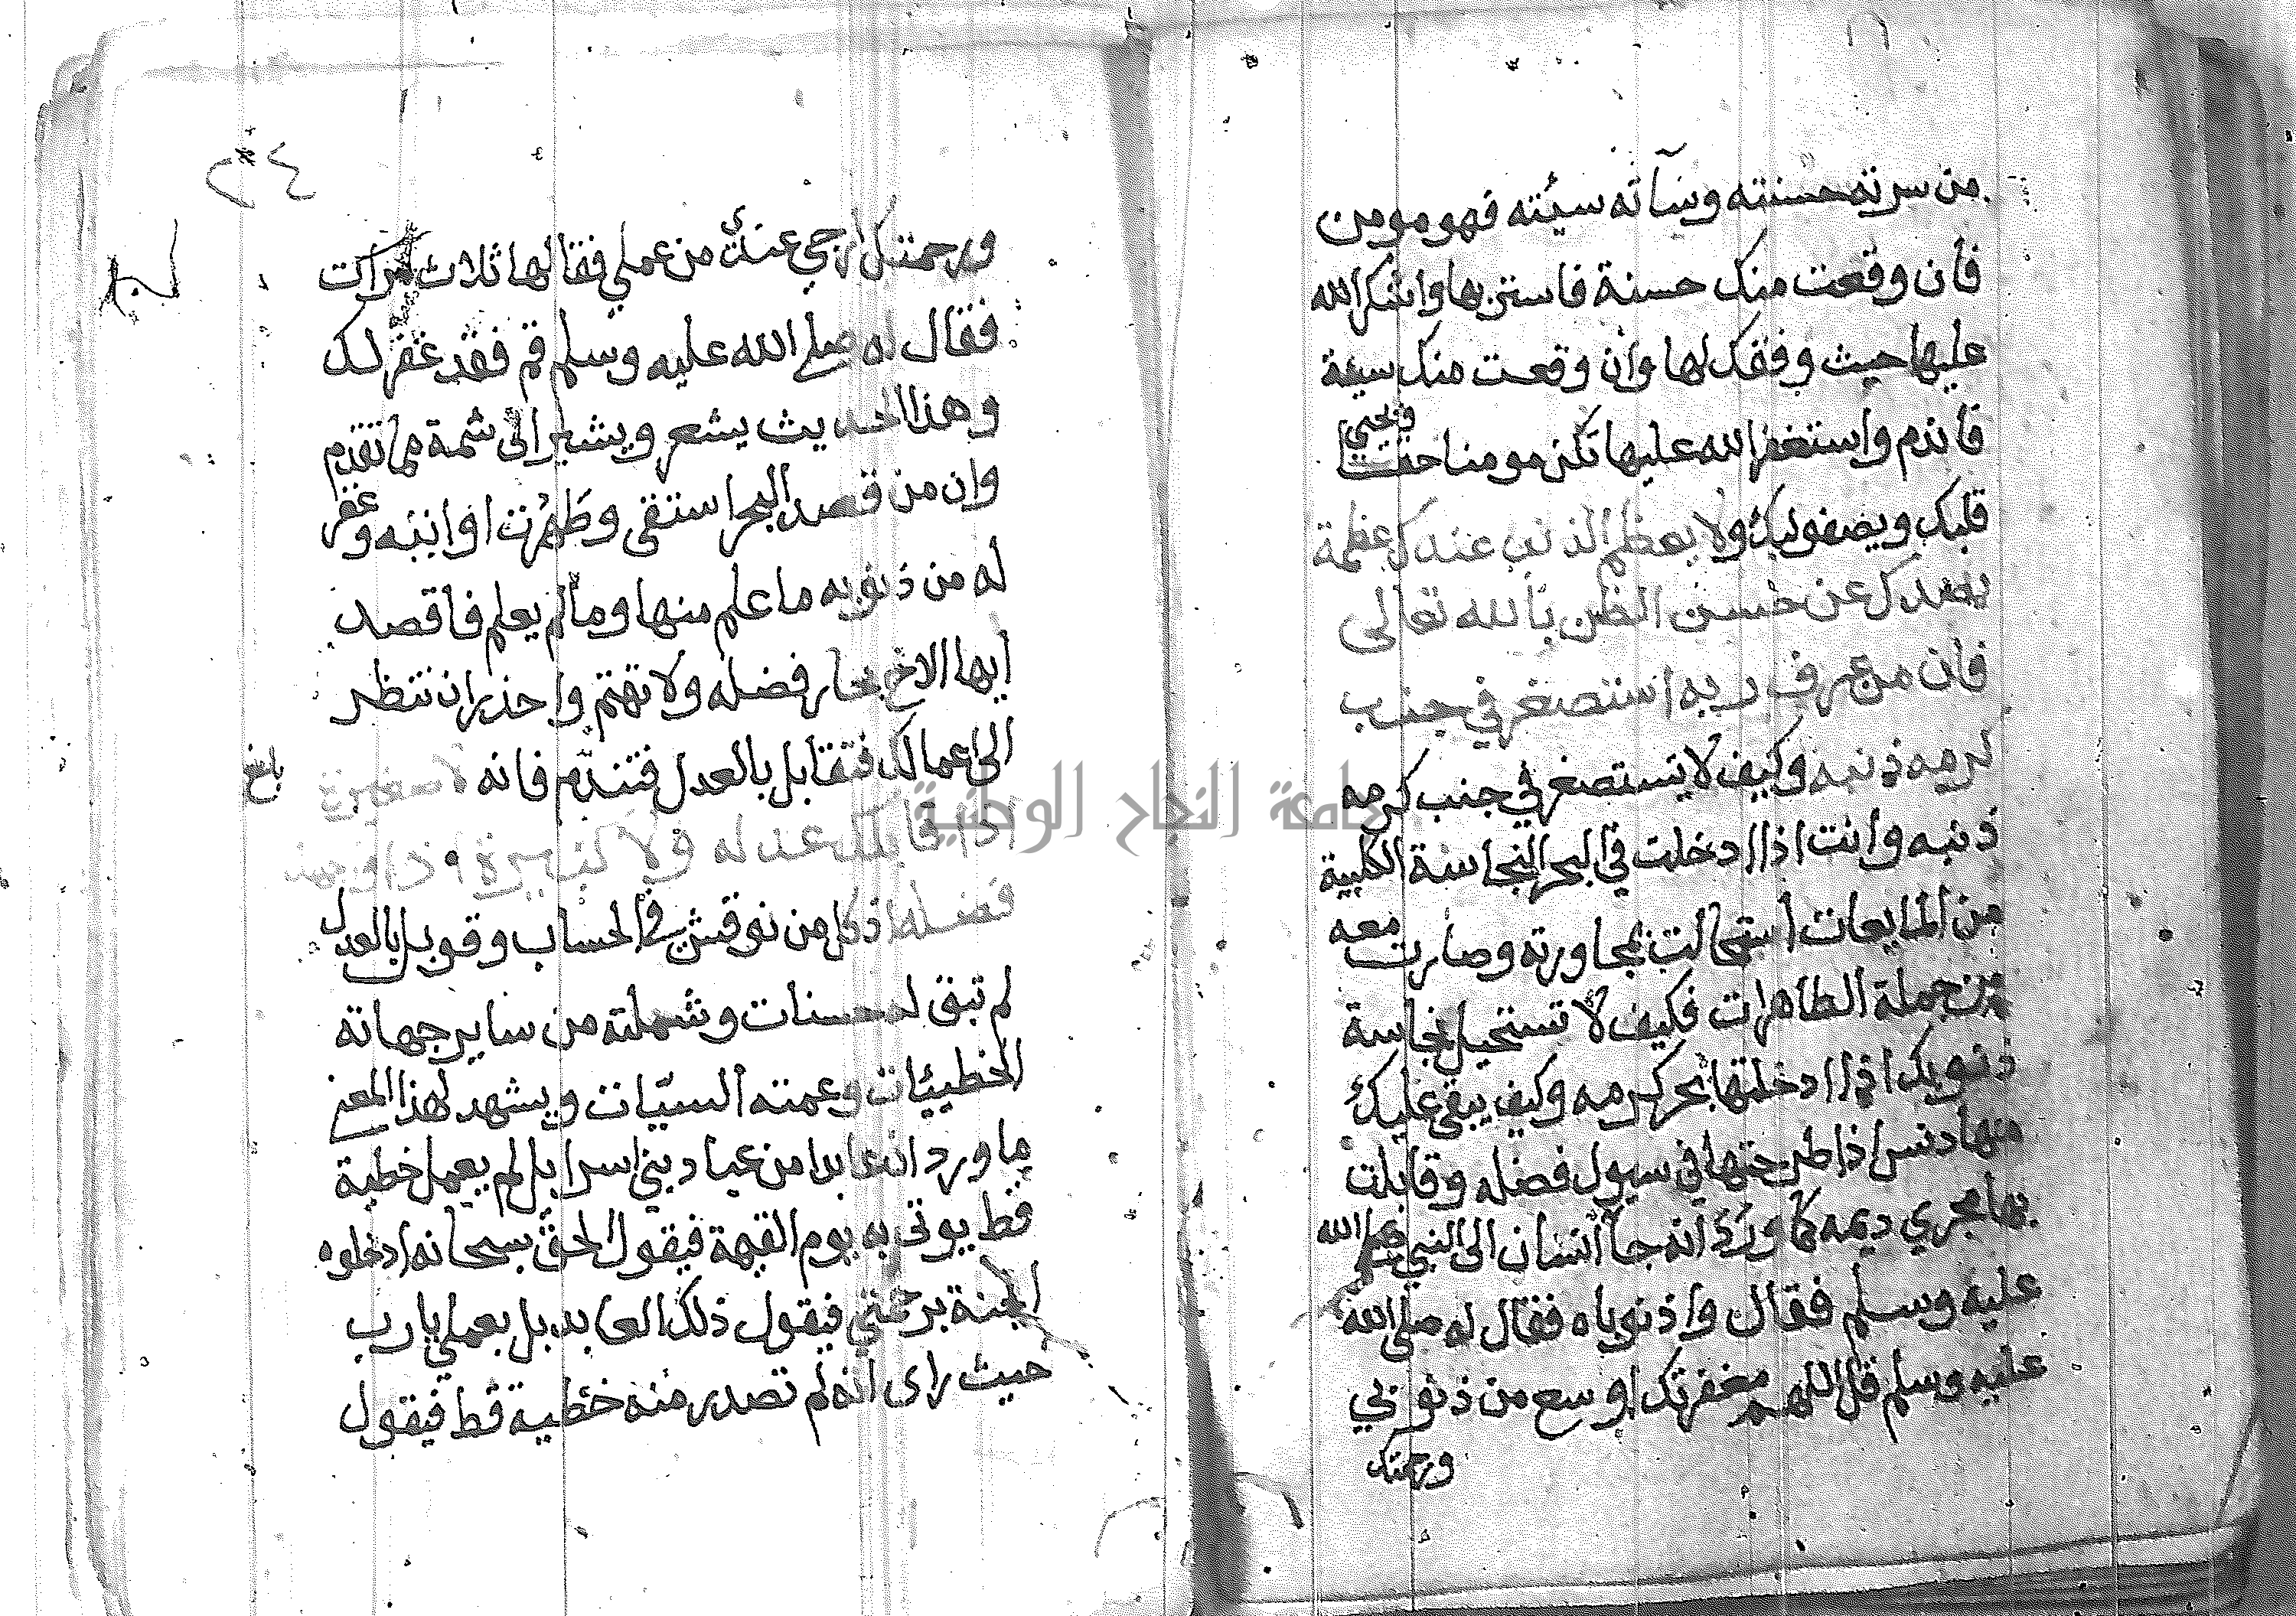 من سرته حسنته وسآته سيئته فهو مومن
فان وقعت منك حسنة فاستر بها واشكر الله
عليها حيث وفقك لها وان وقعت منك سيئة
فاندم واستغفر الله عليها تكن مومنا حقا
فيحيى
قلبك ويصفو لبك ولا يعظم الذنب عندك عظمة
يصدك عن حسن الظن بالله تعالى
فان من عرف ربه استصغر في جنب
كرمه ذنبه وكيف لا يستصغر في جنب كرمه
ذنبه وانت اذا ادخلت في البحر النجاسة الكلبية
من المايعات استحالت بمجاورته وصارت معه
من جملة الطاهرات فكيف لا تستحيل نجاسة
ذنوبك اذا ادخلتها بحر كرمه وكيف يبقى عليك
منها دنس اذا طرحتها في سيول فضله وقابلت
بها مجري ديمه كما ورد انه جا انسان الى النبي صلى الله
عليه وسلم فقال واذنوباه فقال له صلى الله
عليه وسلم قل اللهم مغفرتك اوسع من ذنوبي
ورحمتك
٢٤
ورحمتك ارجي عندي من عملي فقالها ثلاث مرات
فقال له صلى الله عليه وسلم قم فقد غفر لك
وهذا الحديث يشعر ويشير الى شمة مما تقدم
وان من قصد البحر استقى وطهرت اوانيه وغفر
له من ذنوبه ما علم منها وما لم يعلم فاقصد
ايها الاخ بحار فضله ولا تهتم واحذر ان تنظر
الى اعمالك فتقابل بالعدل فتندم فانه لا صغيرة
اذا قابلك عدله ولا كبيرة اذا واجهك
فضله اذ كل من نوقش في الحساب وقوبل بالعدل
لم تبق له حسنات وشملته من ساير جهاته
الخطيئات وعمته السيّات ويشهد لهذا المعنى
ما ورد ان عابدا من عباد بني اسرايل لم يعمل خطية
قط يوتى به يوم القيمة فيقول الحق سبحانه ادخلوه
الجنة برحمتي فيقول ذلك العابد بل بعملي يا رب
حيث راى انه لم تصدر منه خطية قط فيقول
جامعة النجاح الوطنية